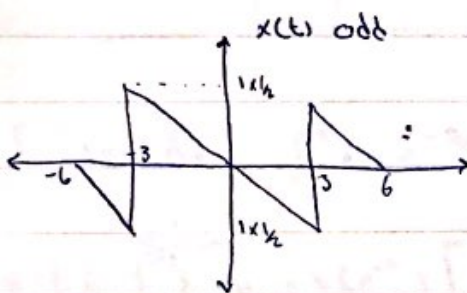 x(t) odd
1x1/2
-6
-3
3
6
1x1/2